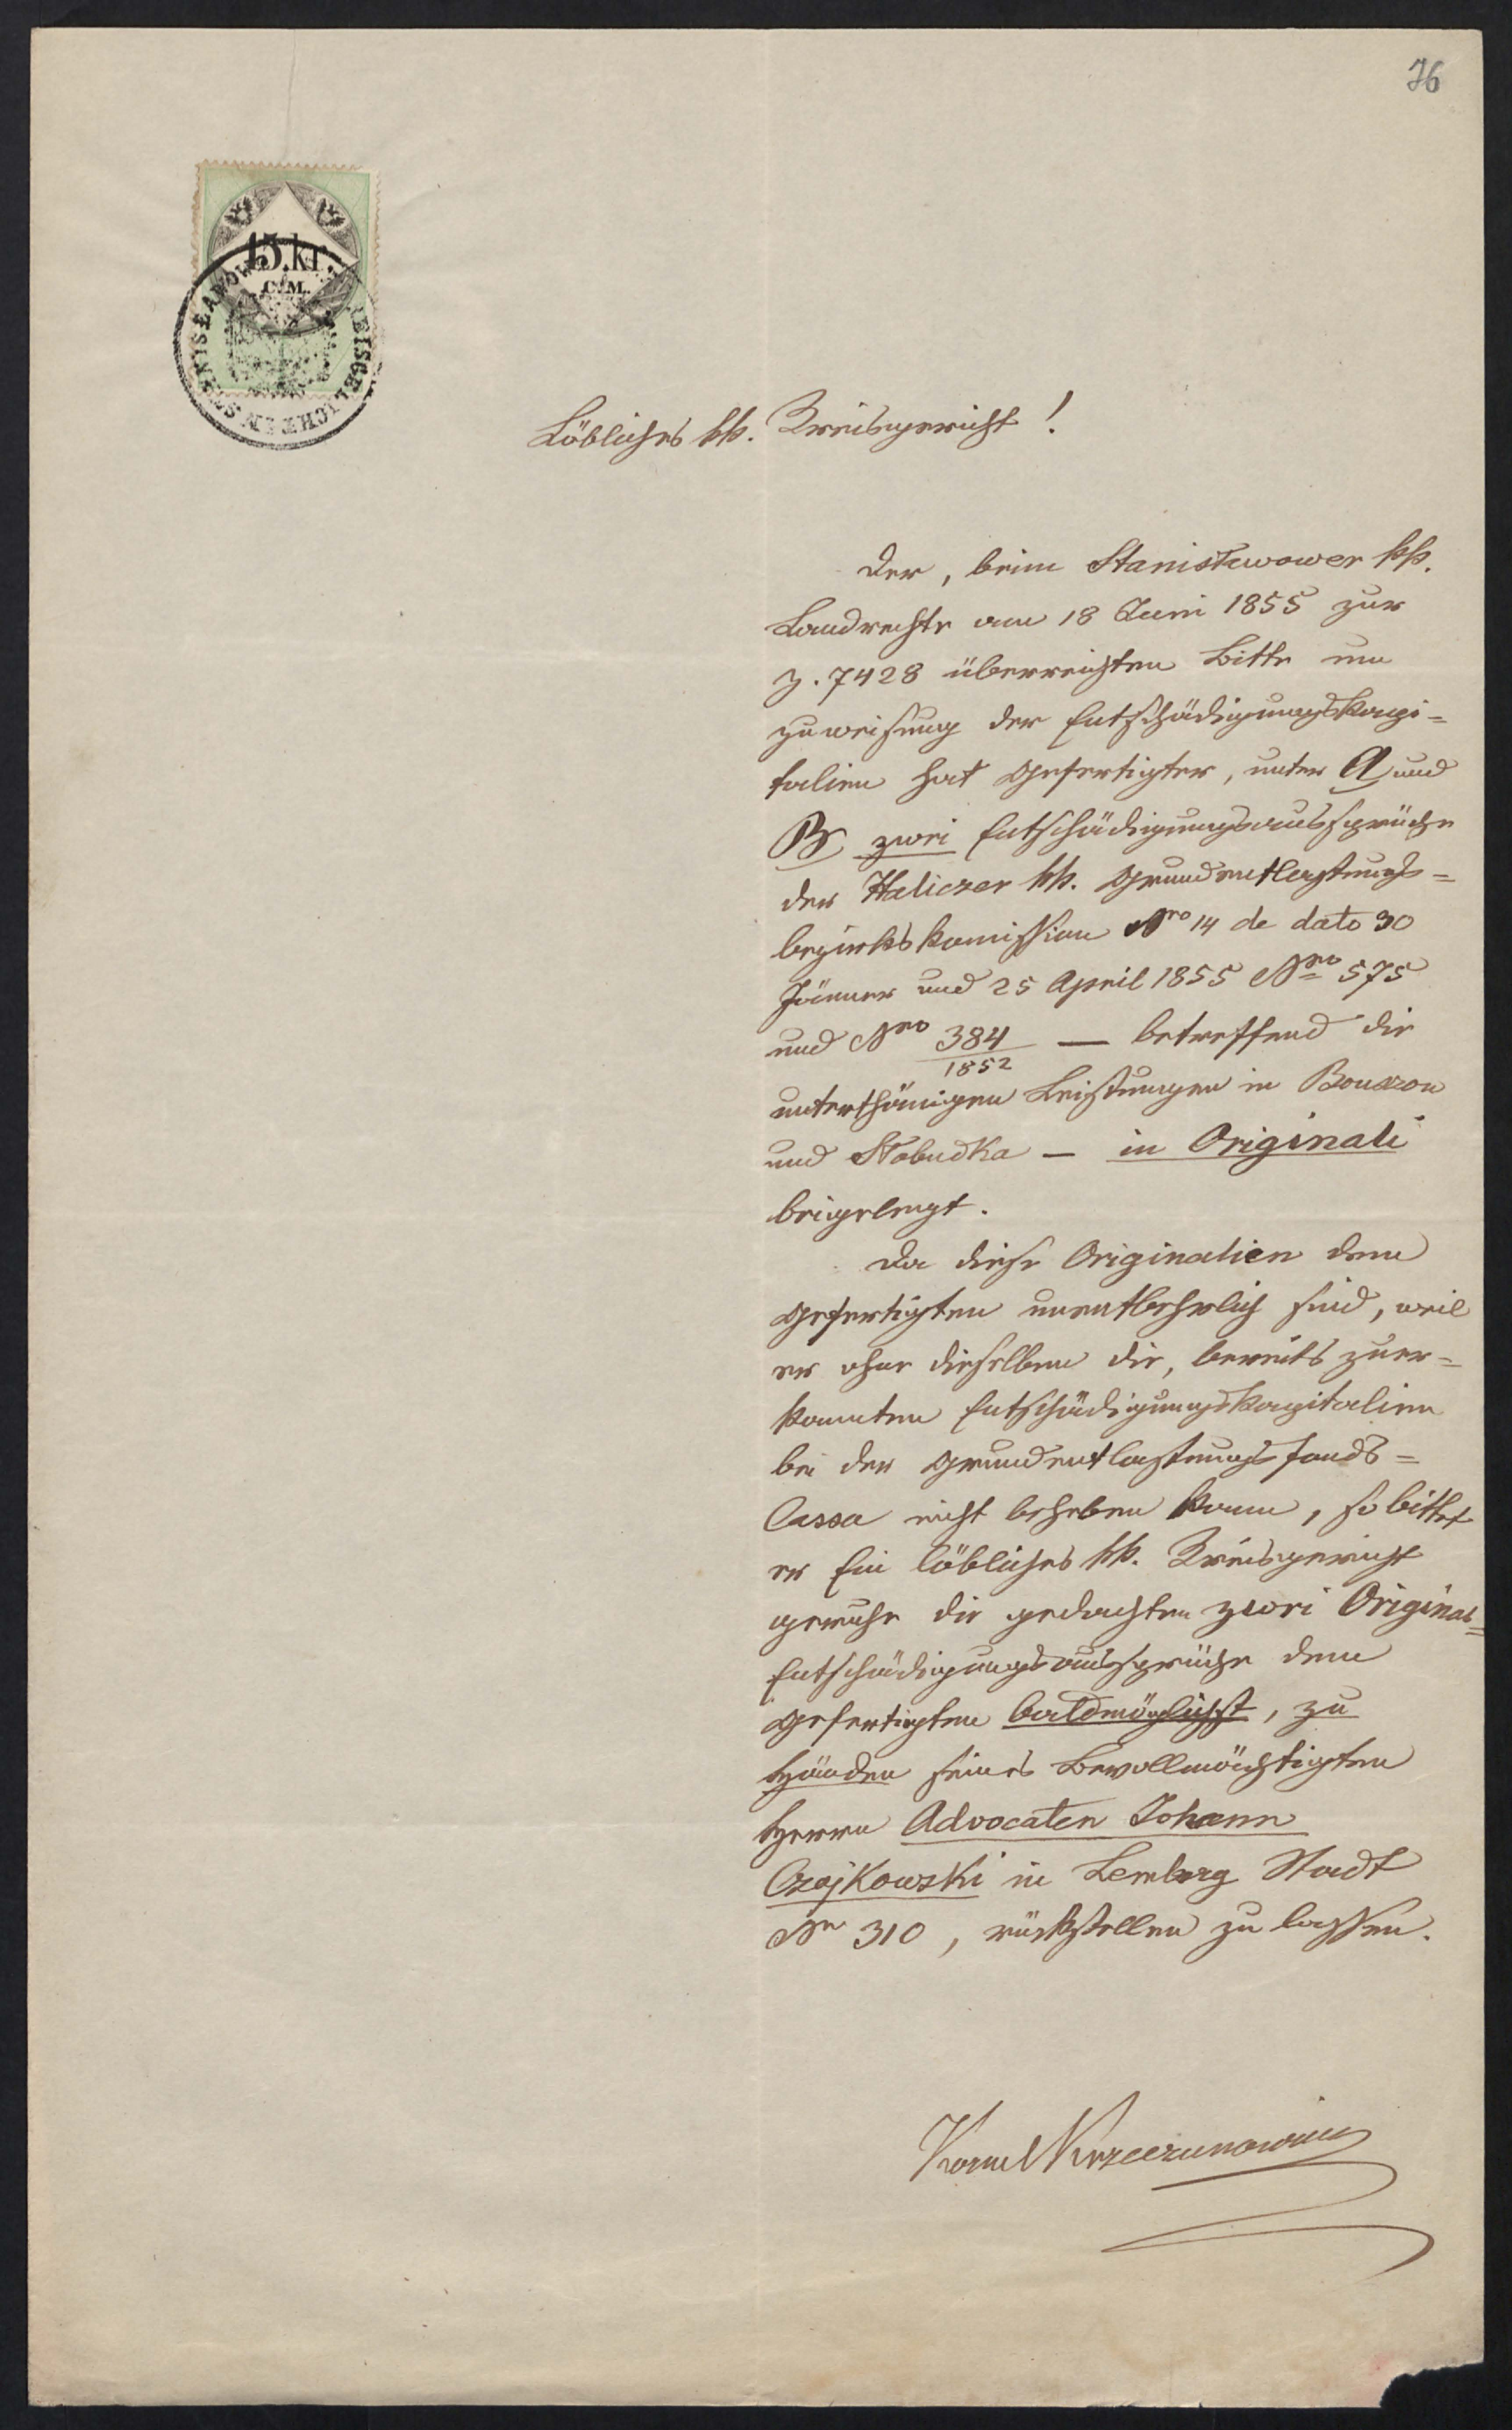 76
15 kr.
C.M.
Löbliches kk. Kreisgericht!
Der, beim Stanisławower kk.
Landrechte am 18 Juni 1855 zur
Z. 7428 überreichten Bitte um
Zuweisung der Entschädigungskapi=
talien hat Gefertigter, unter A und
B zwei Entschädigungsaussprüche
der Haliczer kk. Grundentlastungs=
bezirkskomission Nro 14 de dato 30
Jänner und 25 April 1855 Nro 575
und Nro 384/1852 — betreffend die
unterthänigen Leistungen in Bouszow
und Słobudka — in Originali
beigelegt.
Da diese Originalien dem
Gefertigten unentbehrlich sind, weil
er ohne dieselben die, bereits zuer=
kannten Entschädigungskapitalien
bei der Grundentlastungsfonds=
Cassa nicht beheben kann, so bittet
er Ein löbliches kk. Kreisgericht
geruhe die gedachten zwei Original=
Entschädigungsaussprüche dem
Gefertigten baldmöglichst, zu
Händen seines Bevollmächtigten
Herrn Advocaten Johann
Czajkowski in Lemberg Stadt
Nr 310, rückstellen zu lassen.
Kornel Krzeczunowicz